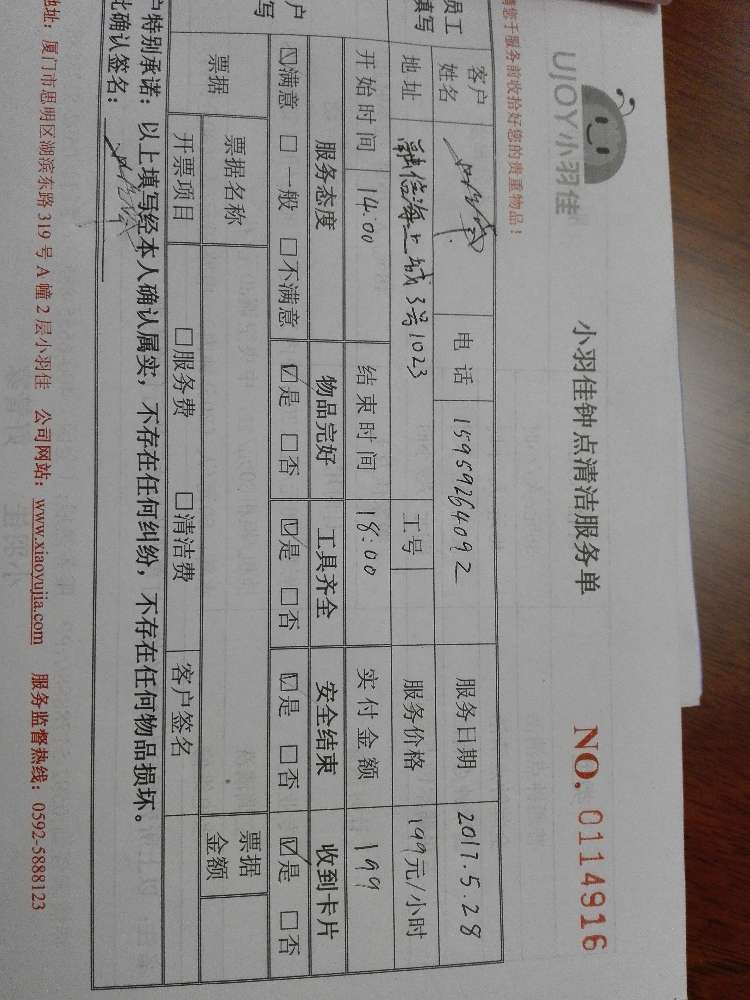 UJOY小羽佳
小羽佳钟点清洁服务单
NO. 0114916
您于服务前收拾好您的贵重物品！
员工 填写
客户姓名 电话 15959264092 服务日期 2017.5.28
地址 融信海上城3号1023 工号 服务价格 199元/小时
开始时间 14:00 结束时间 18:00 实付金额 199
户 写
服务态度 物品完好 工具齐全 安全结束 收到卡片
☑满意 □一般 □不满意 ☑是 □否 ☑是 □否 ☑是 □否 ☑是 □否
票据 票据名称 票据金额
开票项目 □服务费 □清洁费 客户签名
户特别承诺：以上填写经本人确认属实，不存在任何纠纷，不存在任何物品损坏。
此确认签名：
地址：厦门市思明区湖滨东路319号A幢2层小羽佳 公司网站：www.xiaoyujia.com 服务监督热线：0592-5888123